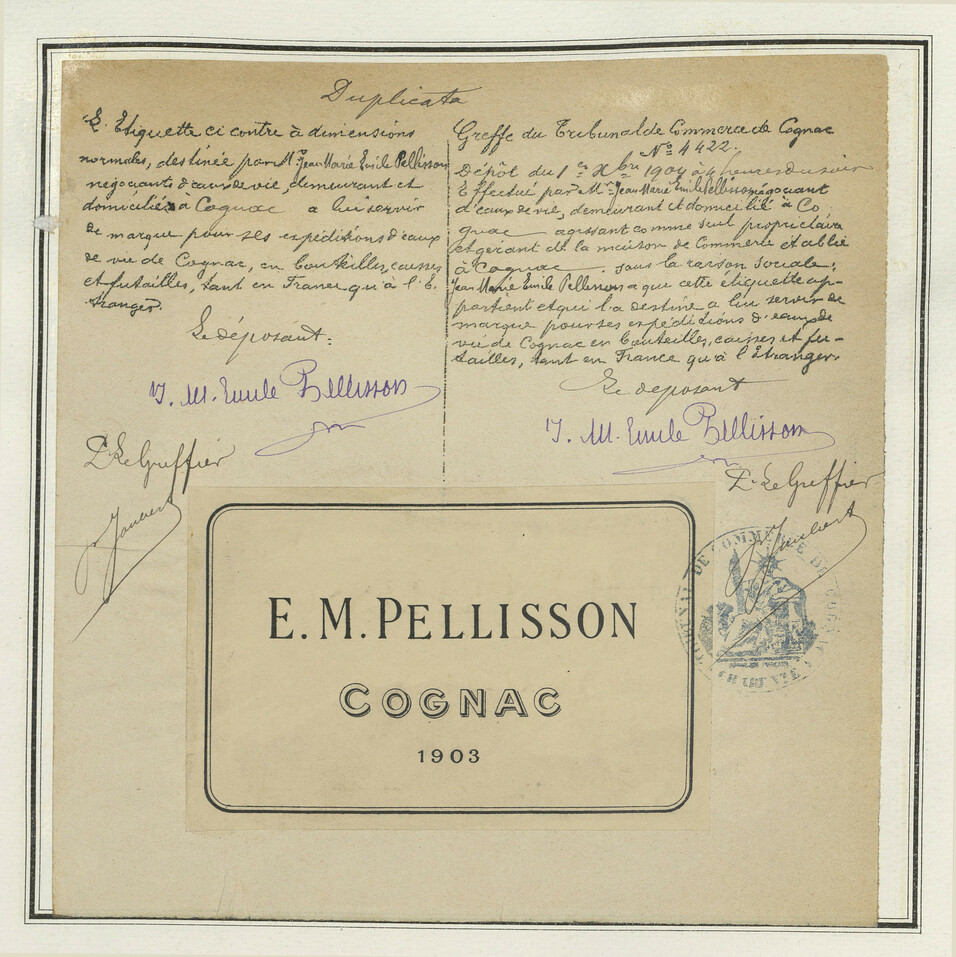 Duplicata
L'Etiquette ci contre à dimensions
normales, destinée par Mr Jean Marie Emile Pellisson
négociants d'eaux de vie, demeurant et
domicilié à Cognac a lui servir
de marque pour ses expéditions d'eaux
de vie de Cognac, en bouteilles, caisses
et futailles, tant en France qu'à l'é
tranger.
Le déposant:
J. M. Emile Pellisson
Le Greffier
Greffe du Tribunal de Commerce de Cognac
No 4422.
Dépôt du 1er Xbre 1904 à 4 heures du soir
Effectué par Mr Jean Marie Emile Pellisson négociant
d'eaux de vie, demeurant et domicilié à Co
gnac agissant comme seul propriétaire
et gérant de la maison de Commerce établie
à Cognac sous la raison sociale:
Jean Marie Emile Pellisson a que cette étiquette ap-
partient et qu'il a destine a lui servir de
marque pour ses expéditions d'eaux de
vie de Cognac en bouteilles, caisses et fu-
tailles, tant en France qu'à l'étranger.
Le deposant
J. M. Emile Pellisson
Le Greffier
TRIBUNAL DE COMMERCE DE COGNAC
CHARENTE
E. M. PELLISSON
COGNAC
1903